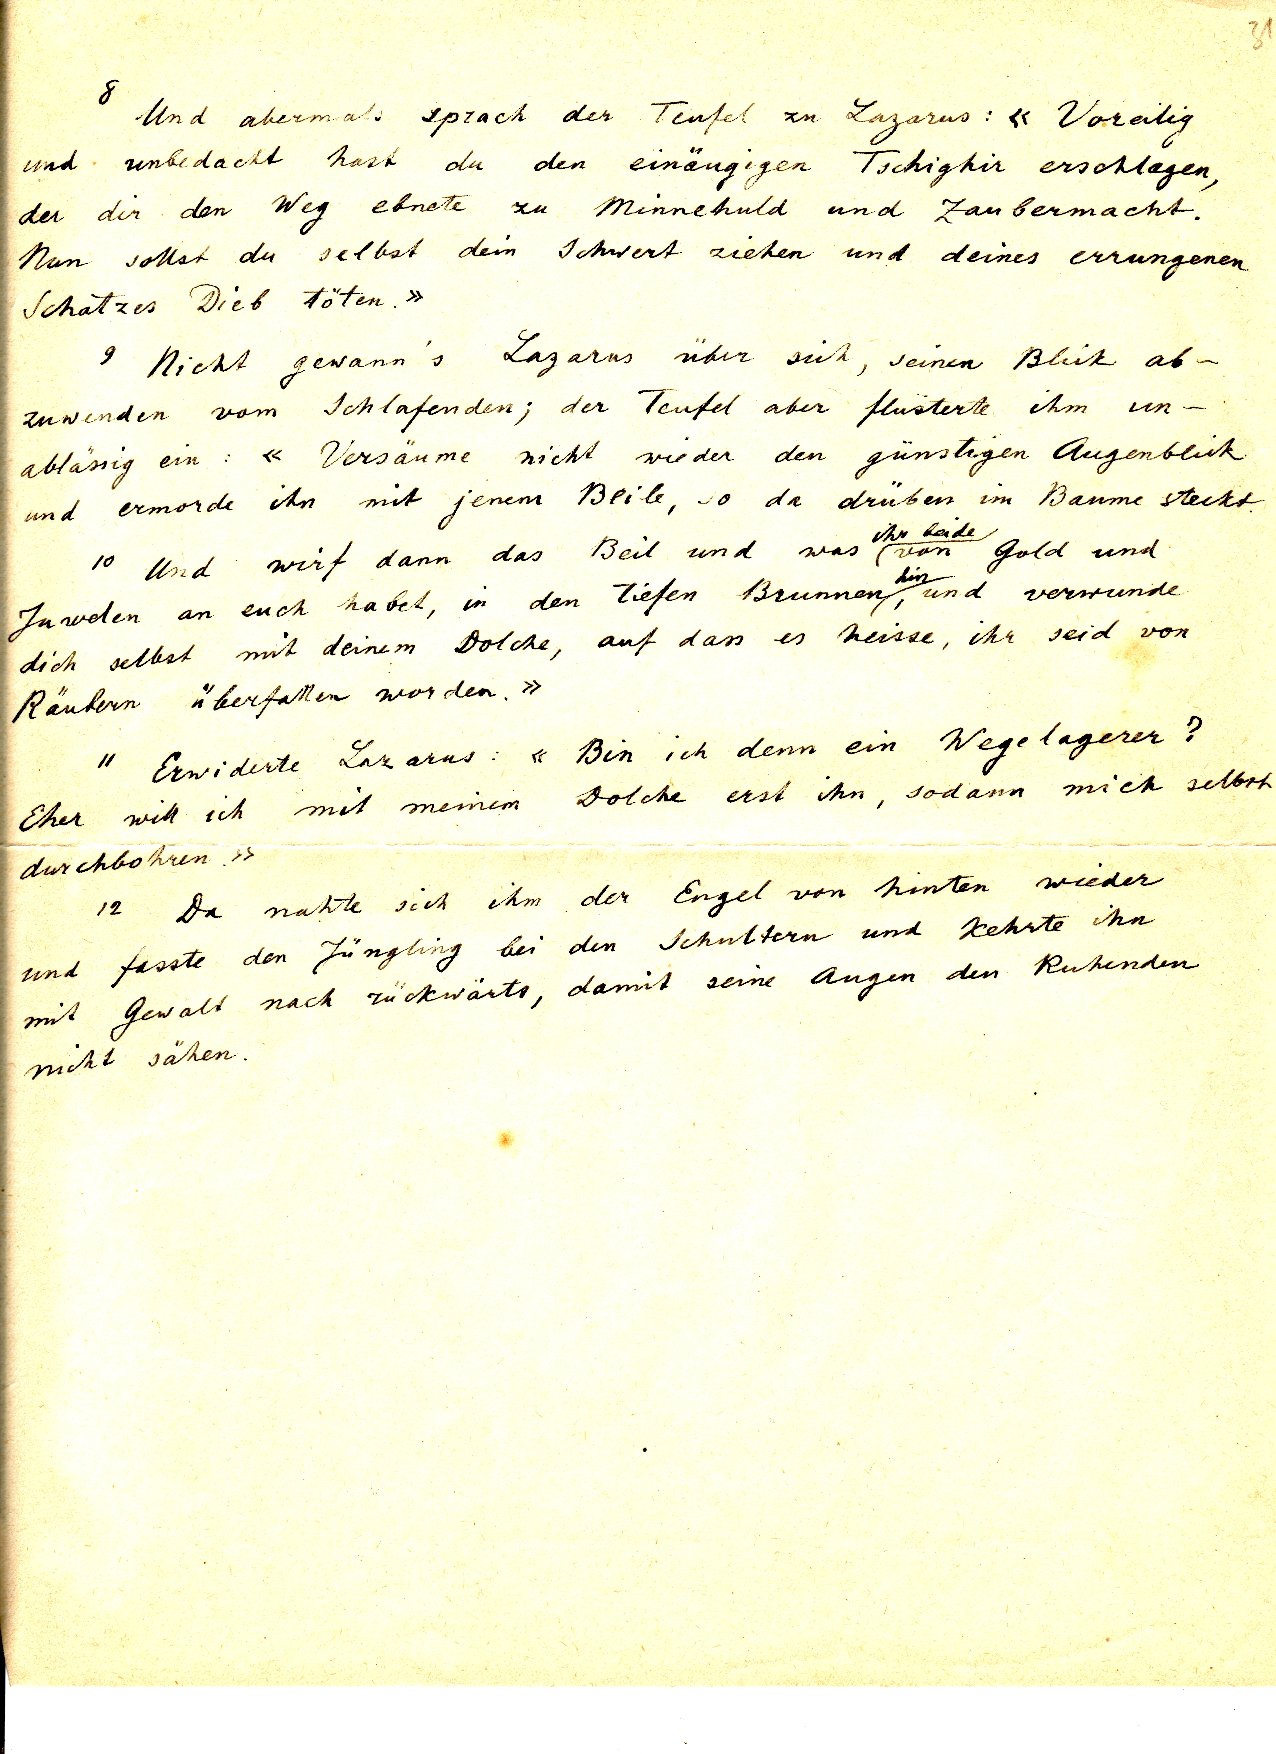 31
8 Und abermals sprach der Teufel zu Lazarus: « Voreilig
und unbedacht hast du den einäugigen Tschighir erschlagen,
der dir den Weg ebnete zu Minnehuld und Zaubermacht.
Nun sollst du selbst dein Schwert ziehen und deines errungenen
Schatzes Dieb töten.»
9 Nicht gewann's Lazarus über sich, seinen Blick ab-
zuwenden vom Schlafenden; der Teufel aber flüsterte ihm un-
ablässig ein: « Versäume nicht wieder den günstigen Augenblick
und ermorde ihn mit jenem Beile, so da drüben im Baume steckt.
10 Und wirf dann das Beil und was ihr beide von Gold und
Juwelen an euch habet, in den tiefen Brunnen hin, und verwunde
dich selbst mit deinem Dolche, auf dass es heisse, ihr seid von
Räubern überfallen worden.»
11 Erwiderte Lazarus: « Bin ich denn ein Wegelagerer?
Eher will ich mit meinem Dolche erst ihn, sodann mich selbst
durchbohren.»
12 Da nahte sich ihm der Engel von hinten wieder
und fasste den Jüngling bei den Schultern und kehrte ihn
mit Gewalt nach rückwärts, damit seine Augen den Ruhenden
nicht sähen.